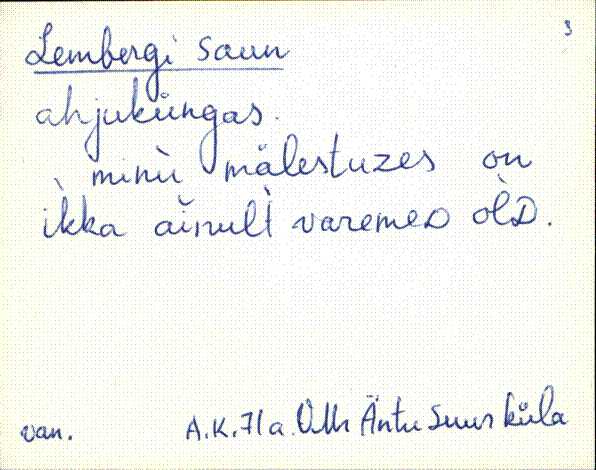 3
Lembergi saun
ahjuküngas.
minù mälestuzes on
ìkka äĭnult̀ varemeD òlD.
van. A.K.71a. VMr Äntu Suurküla